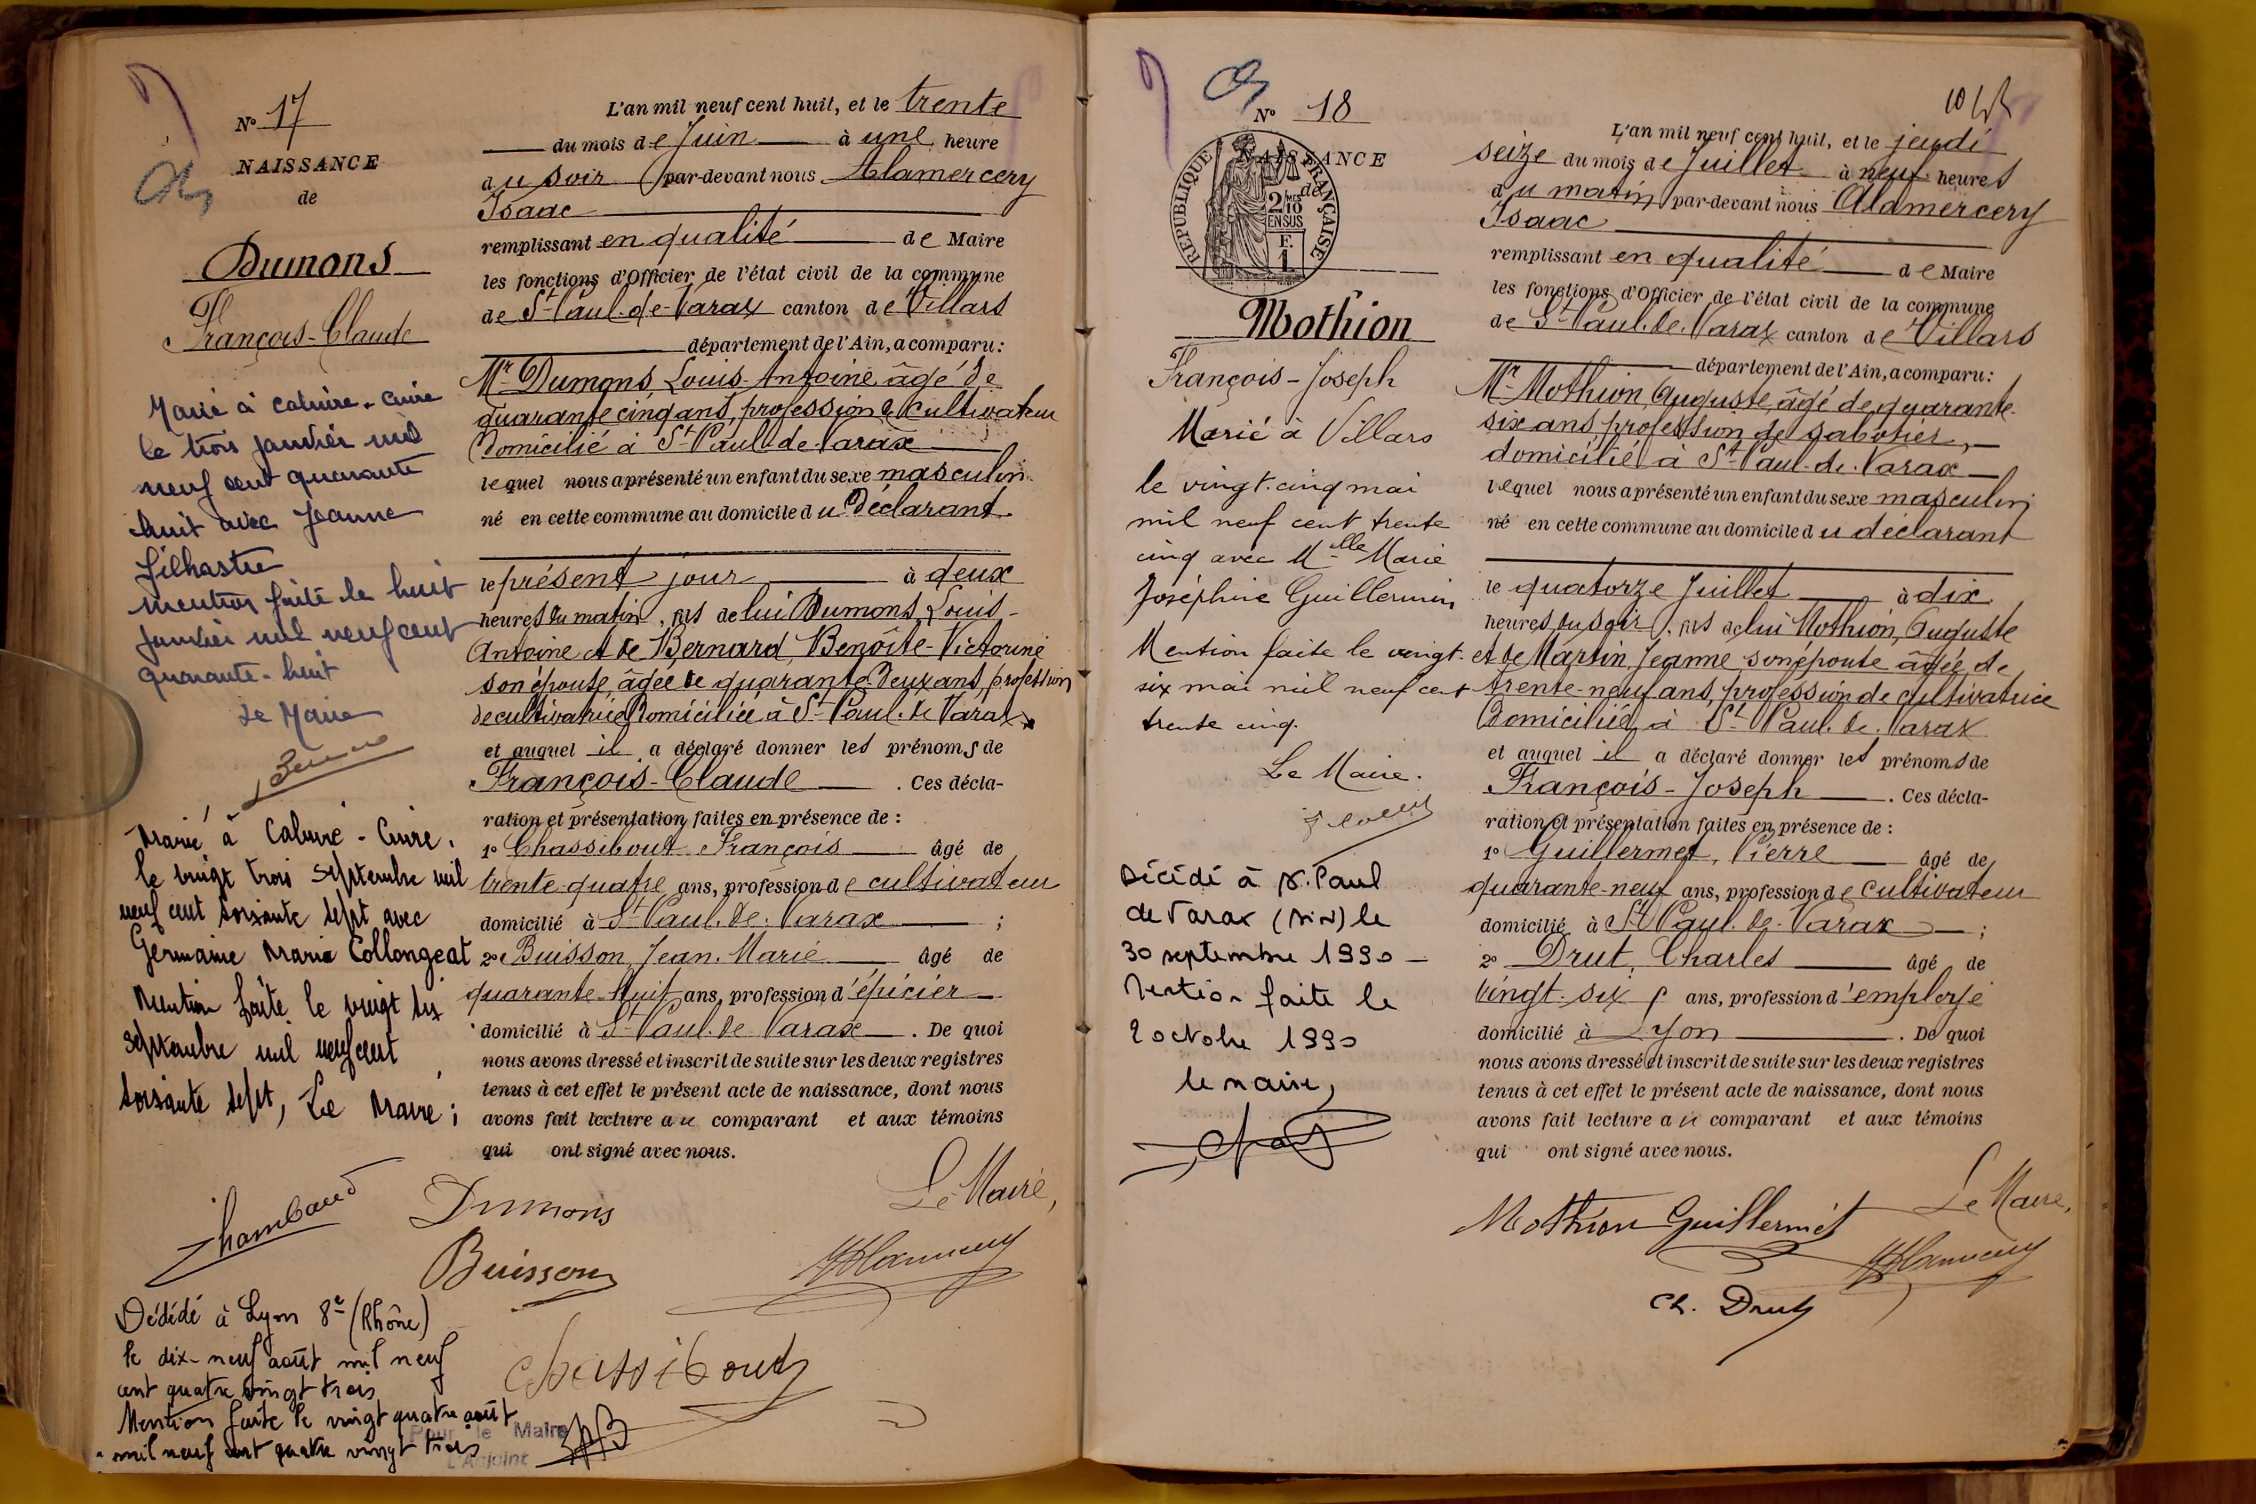 N° 17
NAISSANCE
de
Dumons
François-Claude
Marié à Caluire-Cuire
le trois janvier mil
neuf cent quarante
huit avec Jeanne
Filhastre
mention faite le huit
janvier mil neuf cent
quarante-huit
Le Maire
Marié à Caluire-Cuire.
le vingt trois septembre mil
neuf cent soixante sept avec
Germaine Maria Collongeat
Mention faite le vingt six
septembre mil neuf cent
soixante sept, Le Maire ;
Chambaud
Dédédé à Lyon 8e (Rhône)
le dix-neuf août mil neuf
cent quatre vingt trois
Mention faite le vingt quatre août
mil neuf cent quatre vingt trois
Pour le Maire
L'Adjoint
L'an mil neuf cent huit, et le trente
du mois de Juin à une heure
du soir par-devant nous Alamercery
Isaac
remplissant en qualité de Maire
les fonctions d'Officier de l'état civil de la commune
de St Paul-de-Varax canton de Villars
département de l'Ain, a comparu :
Mr Dumons, Louis-Antoine, âgé de
quarante cinq ans, profession de cultivateur
domicilié à St Paul-de-Varax
lequel nous a présenté un enfant du sexe masculin
né en cette commune au domicile du Déclarant
le présent jour à deux
heures du matin, fils de lui Dumons, Louis-
Antoine et de Bernard, Benoîte-Victorine
son épouse, âgée de quarante-deux ans, profession
de cultivatrice domiciliée à St Paul-de Varax
et auquel il a déclaré donner les prénoms de
François-Claude . Ces décla-
ration et présentation faites en présence de :
1° Chassibout François âgé de
trente-quatre ans, profession de cultivateur
domicilié à St Paul.de.Varax ;
2° Buisson, Jean.Marie âgé de
quarante-huit ans, profession d'épicier
domicilié à St Paul-de-Varax . De quoi
nous avons dressé et inscrit de suite sur les deux registres
tenus à cet effet le présent acte de naissance, dont nous
avons fait lecture au comparant et aux témoins
qui ont signé avec nous.
Le Maire,
Dumons
Buisson
Alamercery
Chassibout
N° 18
NAISSANCE
de
RÉPUBLIQUE FRANÇAISE
2 MES
10
EN SUS
F.
1.
Mothion
François-Joseph
Marié à Villars
le vingt-cinq mai
mil neuf cent trente
cinq avec Mlle Marie
Joséphine Guillermin
Mention faite le vingt-
six mai mil neuf cent
trente cinq.
Le Maire.
Décédé à St. Paul
de Varax (Ain) le
30 septembre 1990 –
Mention faite le
2 octobre 1990
le maire,
L'an mil neuf cent huit, et le jeudi
seize du mois de Juillet à neuf heures
du matin par-devant nous Alamercery
Isaac
remplissant en qualité de Maire
les fonctions d'Officier de l'état civil de la commune
de St Paul.de.Varax canton de Villars
département de l'Ain, a comparu :
Mr Mothion, Auguste, âgé de quarante-
six ans, profession de sabotier,
domicilié à St Paul-de-Varax
lequel nous a présenté un enfant du sexe masculin
né en cette commune au domicile du déclarant
le quatorze Juillet à dix
heures du soir, fils de lui Mothion, Auguste
et de Martin, Jeanne son épouse âgée de
trente-neuf ans, profession de cultivatrice
domiciliée à St Paul.de.Varax
et auquel il a déclaré donner les prénoms de
François-Joseph . Ces décla-
ration et présentation faites en présence de :
1° Guillermet, Pierre âgé de
quarante-neuf ans, profession de cultivateur
domicilié à St Paul-de-Varax ;
2° Drut, Charles âgé de
vingt-six ans, profession d'employé
domicilié à Lyon . De quoi
nous avons dressé et inscrit de suite sur les deux registres
tenus à cet effet le présent acte de naissance, dont nous
avons fait lecture au comparant et aux témoins
qui ont signé avec nous.
Le Maire,
Mothion Guillermet
Alamercery
Ch. Drut